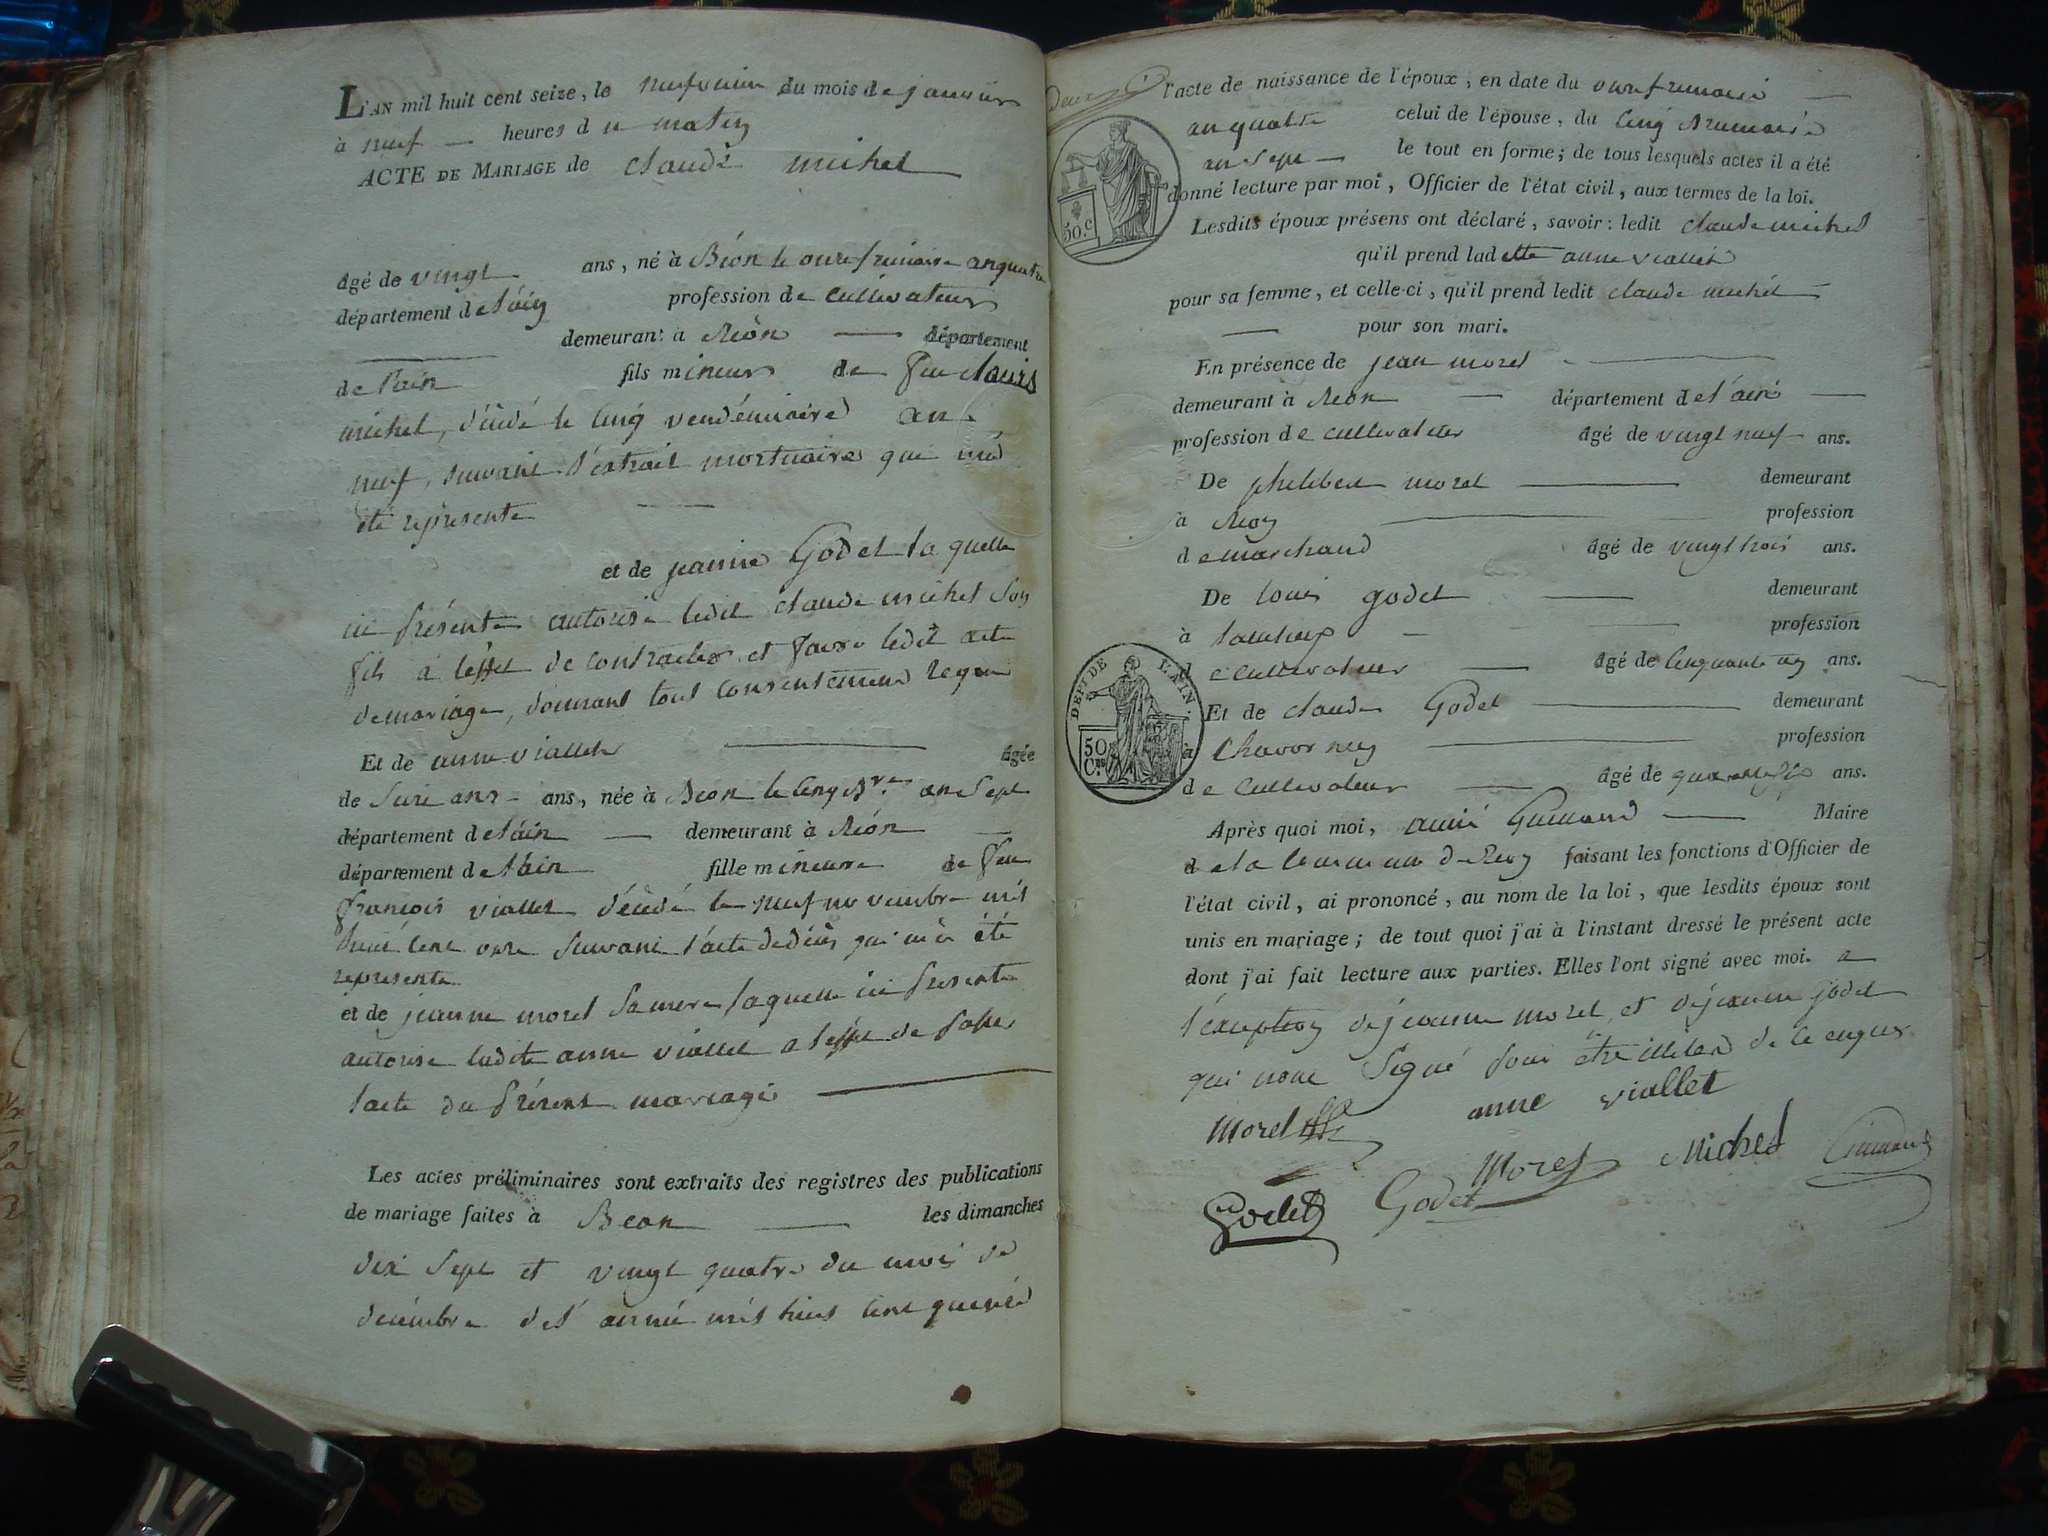 L'AN mil huit cent seize, le neufvieme du mois de janvier
à neuf heures du matin
ACTE DE MARIAGE de claude michel
âgé de vingt ans, né à Béon le onze frimaire an quatre
département de l'ain profession de cultivateur
demeurant à Béon département
de l'ain fils mineur de feu
michel, décédé le cinq vendémiaire an
neuf, suivant l'extrait mortuaire qui m'a
été representé
et de jeanne Godet laquelle
ici présente autorise ledit claude michel son
fils à l'effet de contracter et faire ledit acte
de mariage, donnant tout consentement requis
Et de anne viallet âgée
de seize ans ans, née à Béon le cinq Bre an sept
département de l'ain demeurant à Béon
département de l'ain fille mineure de feu
françois viallet décédé le neuf novembre mil
huit cent onze suivant l'acte de décès qui m'a été
representé
et de jeanne morel sa mere laquelle ici presente
autorise ladite anne viallet a l'effet de passer
l'acte du présent mariage
Les actes préliminaires sont extraits des registres des publications
de mariage faites à Beon les dimanches
dix sept et vingt quatre du mois de
décembre de l'année mil huit cent quinze
l'acte de naissance de l'époux, en date du onze frimaire
an quatre celui de l'épouse, du cinq Brumaire
an sept le tout en forme; de tous lesquels actes il a été
donné lecture par moi, Officier de l'état civil, aux termes de la loi.
50.c
Lesdits époux présens ont déclaré, savoir: ledit claude michel
qu'il prend ladette anne viallet
pour sa femme, et celle-ci, qu'il prend ledit claude michel
pour son mari.
En présence de jean morel
demeurant à Beon département de l'ain
profession de cultivateur âgé de vingt neuf ans.
De philibert morel demeurant
à Beon profession
de marchand âgé de vingt trois ans.
De louis godet demeurant
à profession
de cultivateur âgé de cinquante ans.
DEPT DE L'AIN.
50 Cns
Et de claude Godet demeurant
à Chavornay profession
de cultivateur âgé de ans.
Après quoi moi, aimé Guinand Maire
de la commune de Beon faisant les fonctions d'Officier de
l'état civil, ai prononcé, au nom de la loi, que lesdits époux sont
unis en mariage; de tout quoi j'ai à l'instant dressé le présent acte
dont j'ai fait lecture aux parties. Elles l'ont signé avec moi. a
l'exception de jeanne morel et de jeanne godet
qui n'ont signé pour être de ce enquis
morel anne viallet
Morel Michel Guinand
Godet Godet